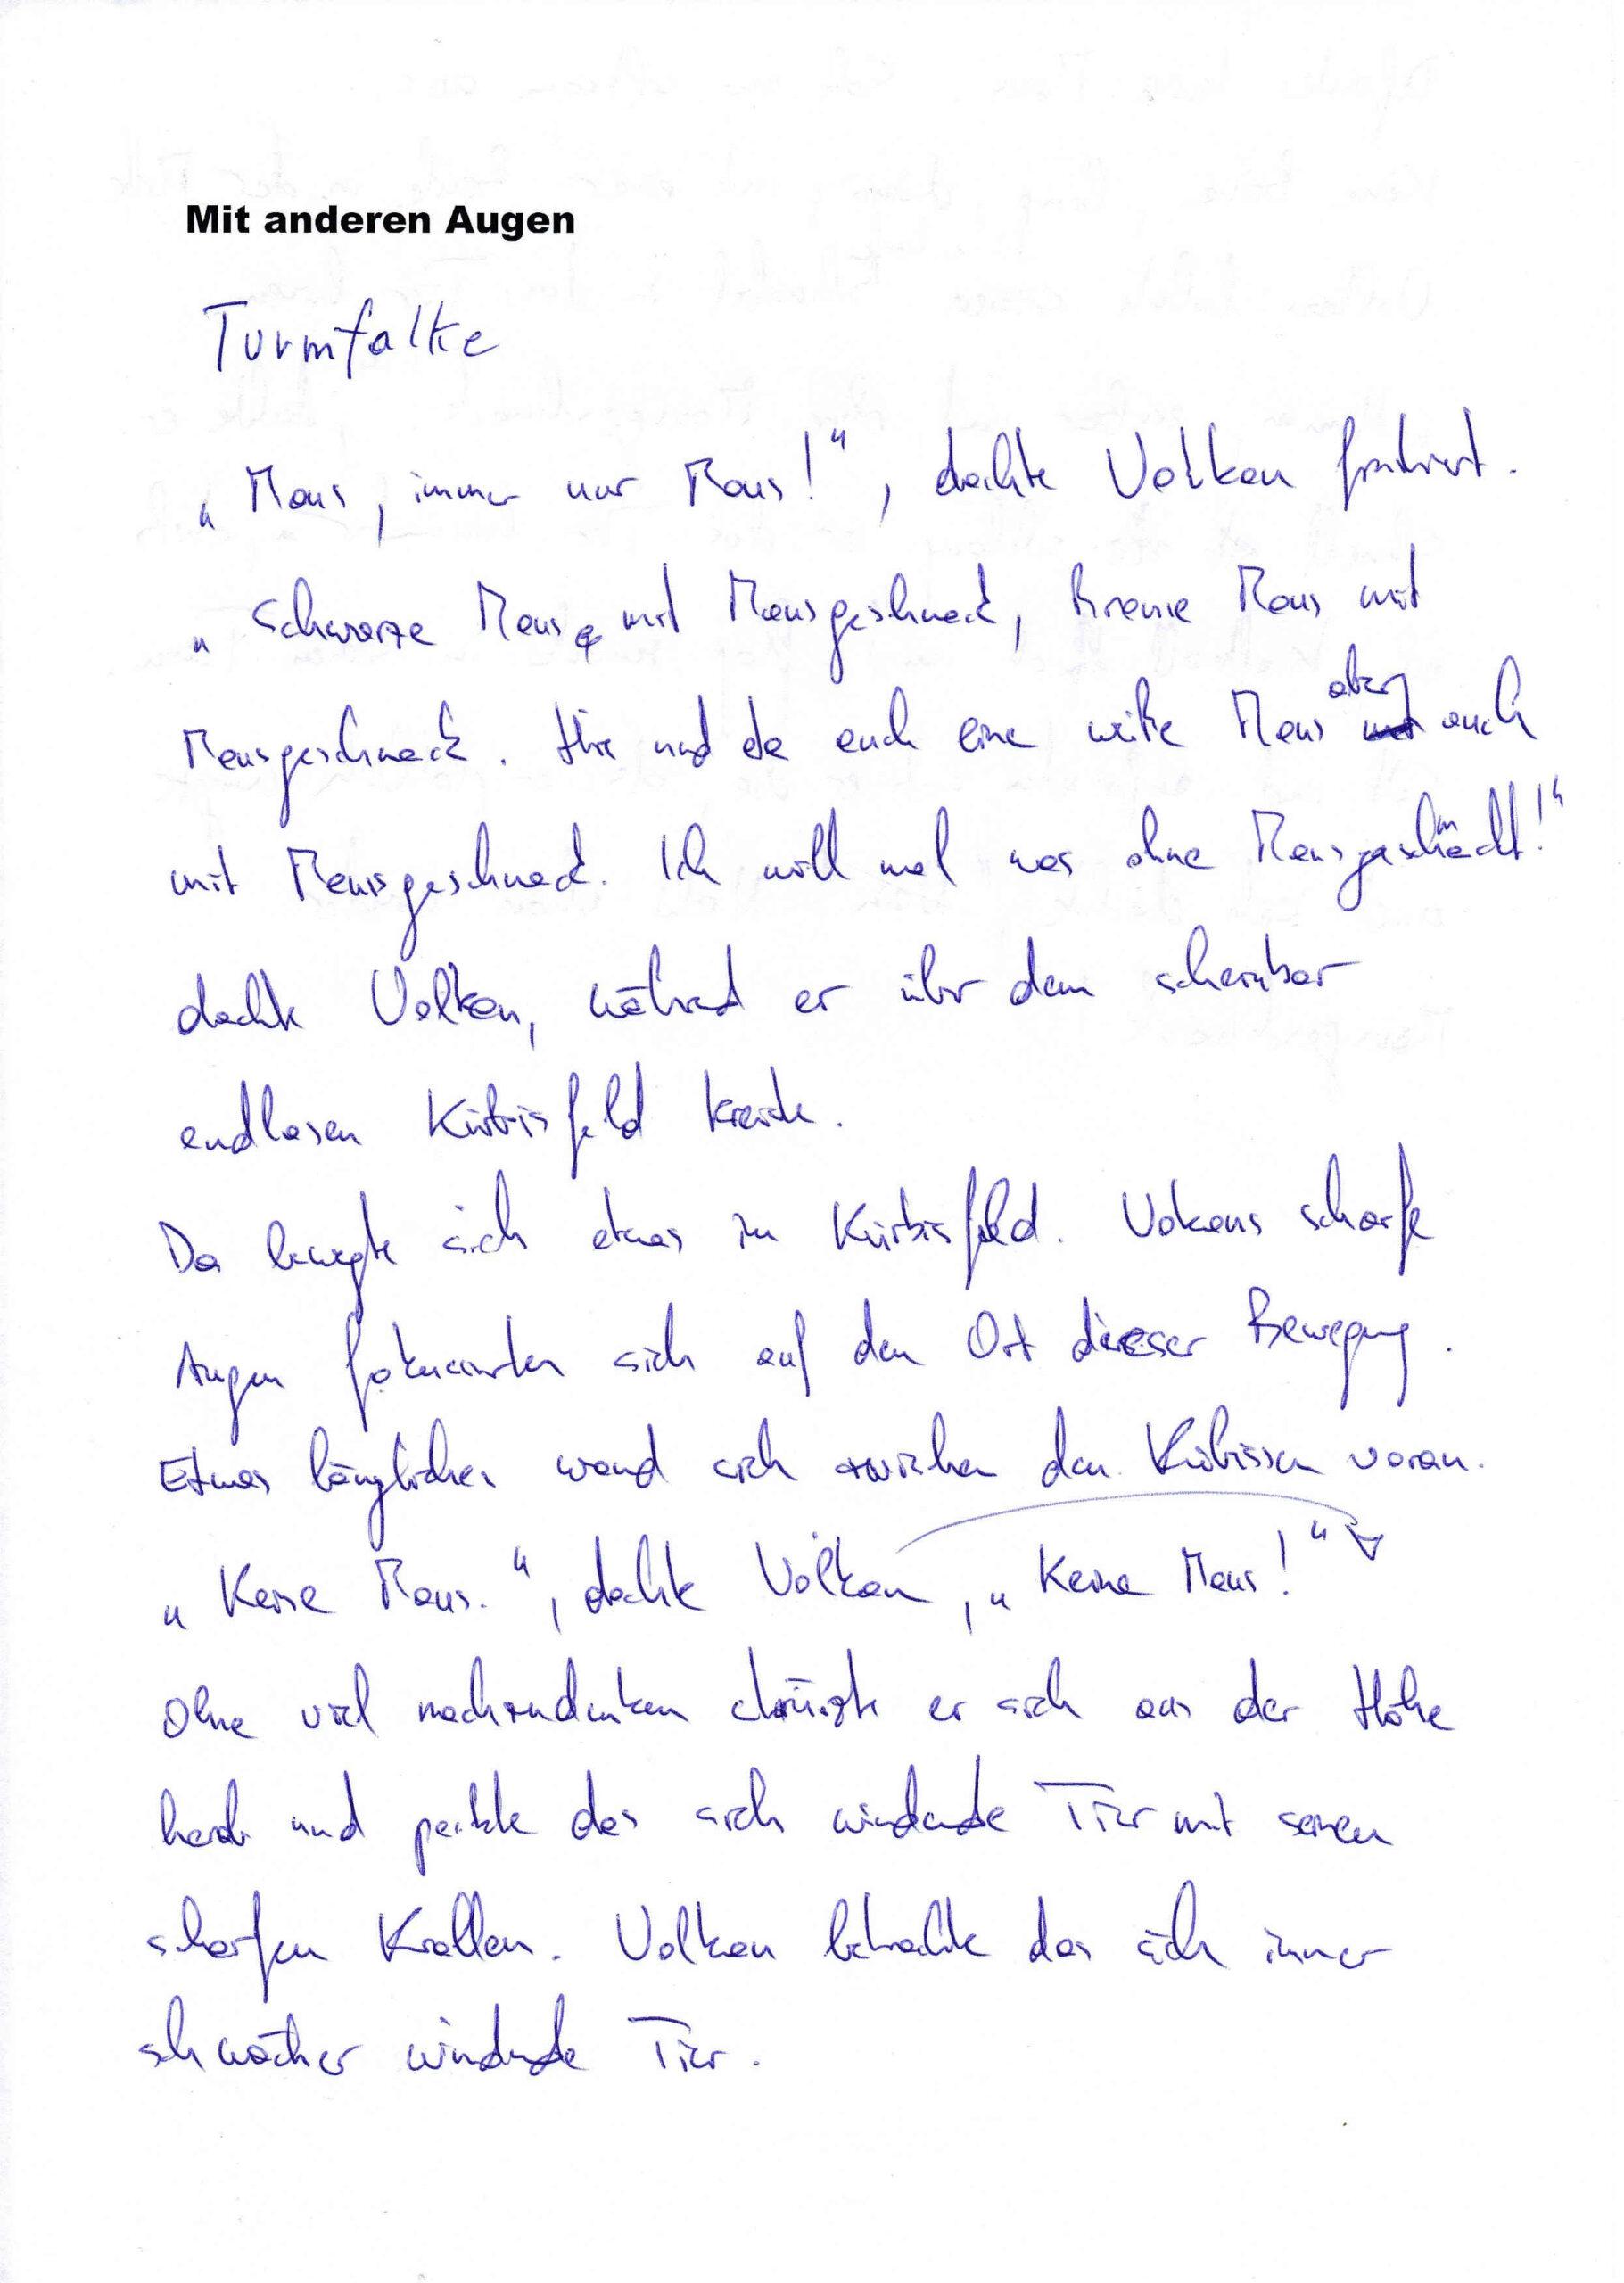 Mit anderen Augen
Turmfalke
„Maus, immer nur Maus!“, dachte Volkan frustriert.
„Schwarze Maus mit Mausgeschmack, braune Maus mit
Mausgeschmack. Hie und da auch eine weiße Maus aber auch
mit Mausgeschmack. Ich will mal was ohne Mausgeschmack!“
dachte Volkan, während er über dem scheinbar
endlosen Kürbisfeld kreiste.
Da bewegte sich etwas im Kürbisfeld. Vokans scharfe
Augen fokussierten sich auf den Ort dieser Bewegung.
Etwas längliches wand sich zwischen den Kürbissen voran.
„Keine Maus.“, dachte Volkan, „Keine Maus!“
Ohne viel nachzudenken stürzte er sich aus der Höhe
herab und packte das sich windende Tier mit seinen
scharfen Krallen. Volkan betrachtete das sich immer
schwächer windende Tier.